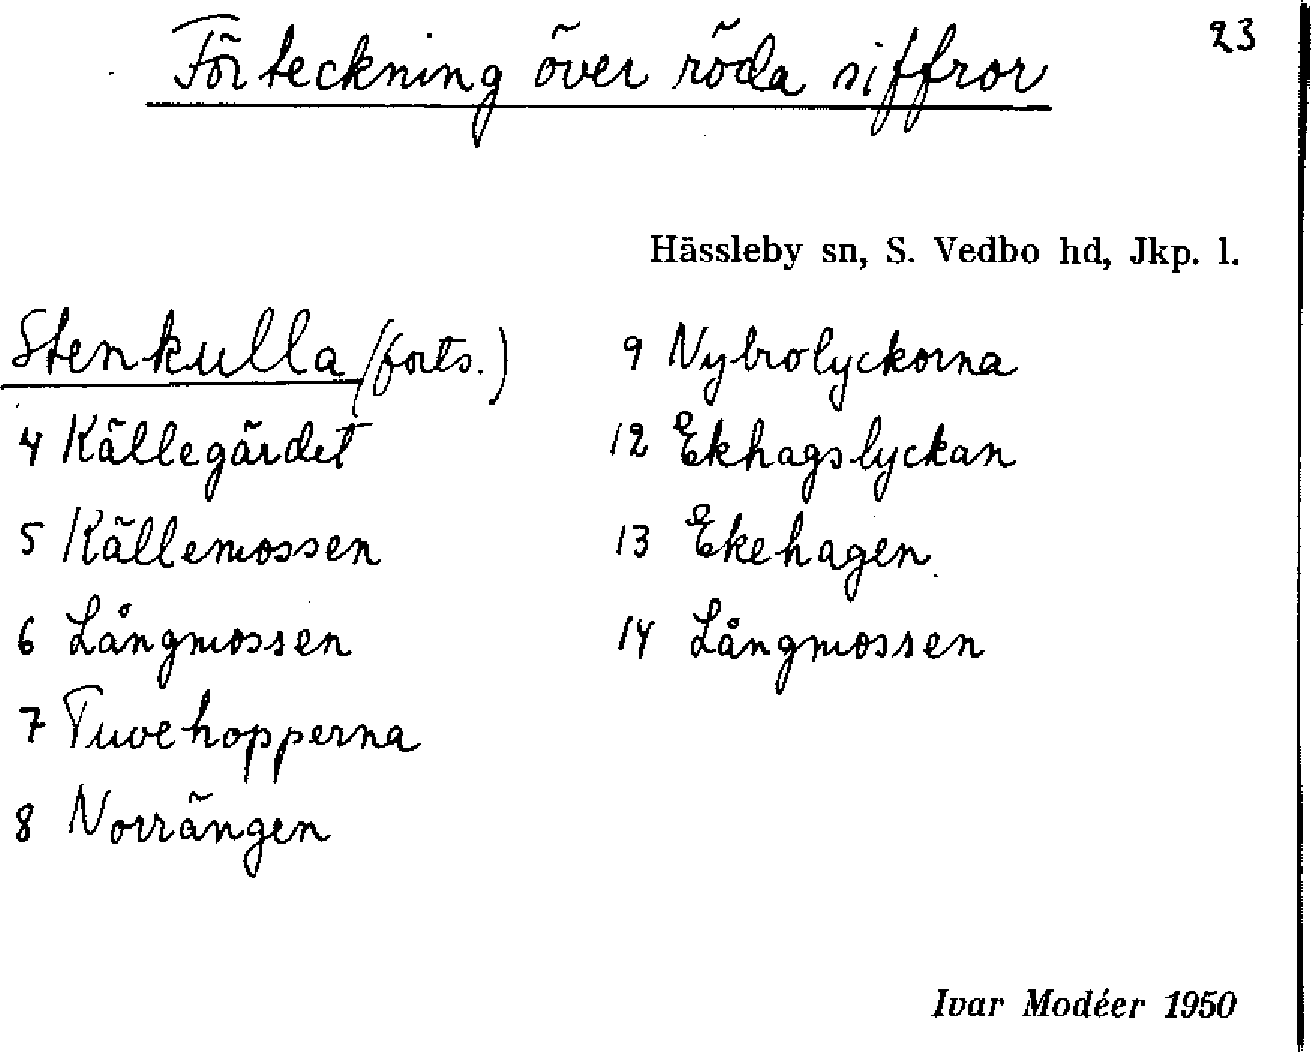 23
Förteckning över röda siffror
Hässleby sn, S. Vedbo hd, Jkp. l.
Stenkulla (forts.)
4 Källegärdet
5 Källemossen
6 Långmossen
7 Tuvehopperna
8 Norrängen
9 Nybrolyckorna
12 Ekhagslyckan
13 Ekehagen
14 Långmossen
Ivar Modéer 1950